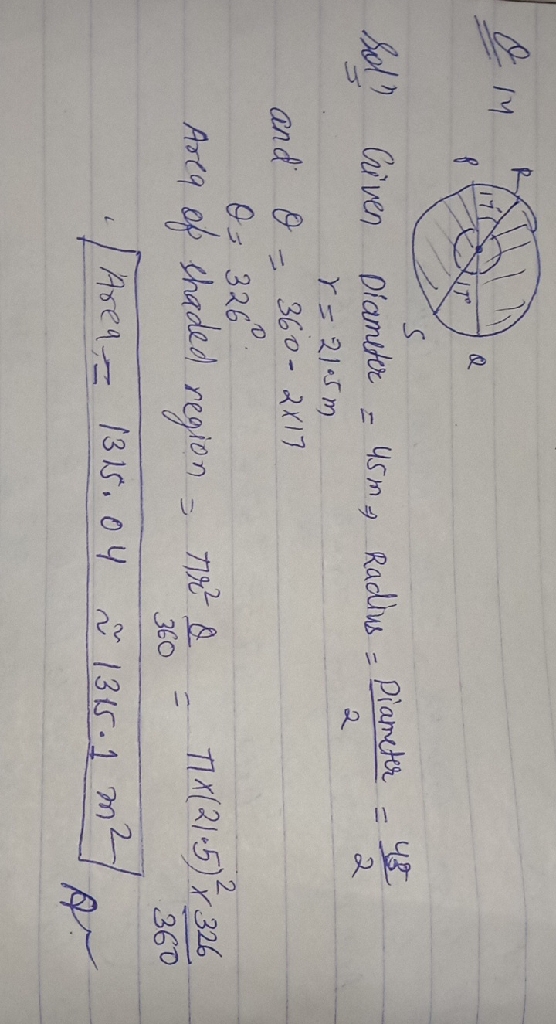 Q 14
P
R
17°
17
S
Q
Sol'n Given Diameter = 45m → Radius = Diameter / 2 = 45 / 2
r = 21.5 m
and θ = 360 - 2×17
θ = 326°
Area of shaded region = πr² θ / 360 = π×(21.5)² × 326 / 360
Area = 1315.04 ≈ 1315.1 m²